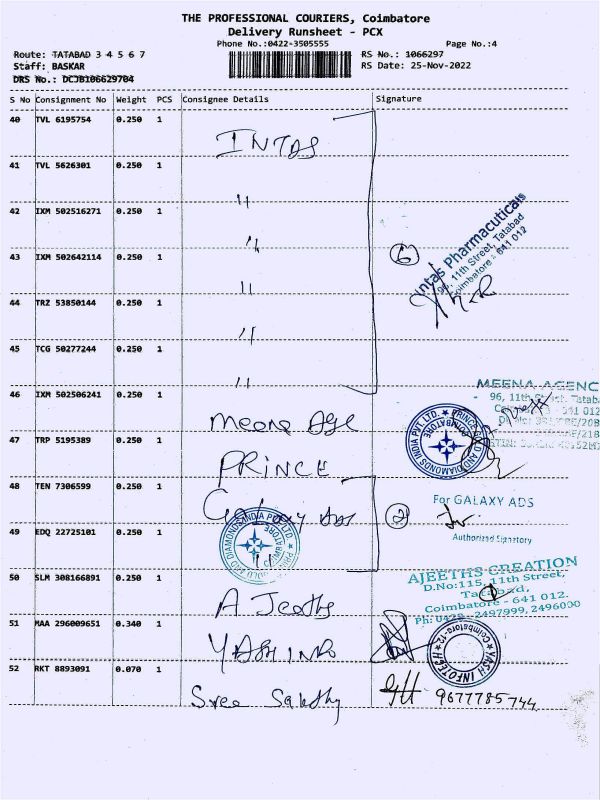 THE PROFESSIONAL COURIERS, Coimbatore
Delivery Runsheet - PCX
Phone No.:0422-3505555 Page No.:4
Route: TATABAD 3 4 5 6 7 RS No.: 1066297
Staff: BASKAR RS Date: 25-Nov-2022
DRS No.: DCJB106629704
S No Consignment No Weight PCS Consignee Details Signature
40 TVL 6195754 0.250 1
INTAS
41 TVL 5626301 0.250 1
"
42 IXM 502516271 0.250 1
"
43 IXM 502642114 0.250 1
"
6
Intas Pharmaceuticals
96, 11th Street, Tatabad
Coimbatore - 641 012
44 TRZ 53850144 0.250 1
"
45 TCG 50277244 0.250 1
"
46 IXM 502506241 0.250 1
Meena Age
MEENA AGENC
96, 11th
47 TRP 5195389 0.250 1
PRINCE
PRINCE GOLD AND DIAMONDS INDIA PVT. LTD.
COIMBATORE
48 TEN 7306599 0.250 1
Galaxy Ads
2
For GALAXY ADS
Authorised Signatory
49 EDQ 22725101 0.250 1
"
PRINCE GOLD AND DIAMONDS INDIA PVT. LTD.
COIMBATORE
50 SLM 308166891 0.250 1
A Jeeths
AJEETHS CREATION
D.No:115, 11th Street,
Tatabad,
Coimbatore - 641 012.
Ph: 0422 - 2497999, 2496000
51 MAA 296009651 0.340 1
YASH INFO
YASH INFOTECH
Coimbatore-12
52 RKT 8893091 0.070 1
Sree
9677785744